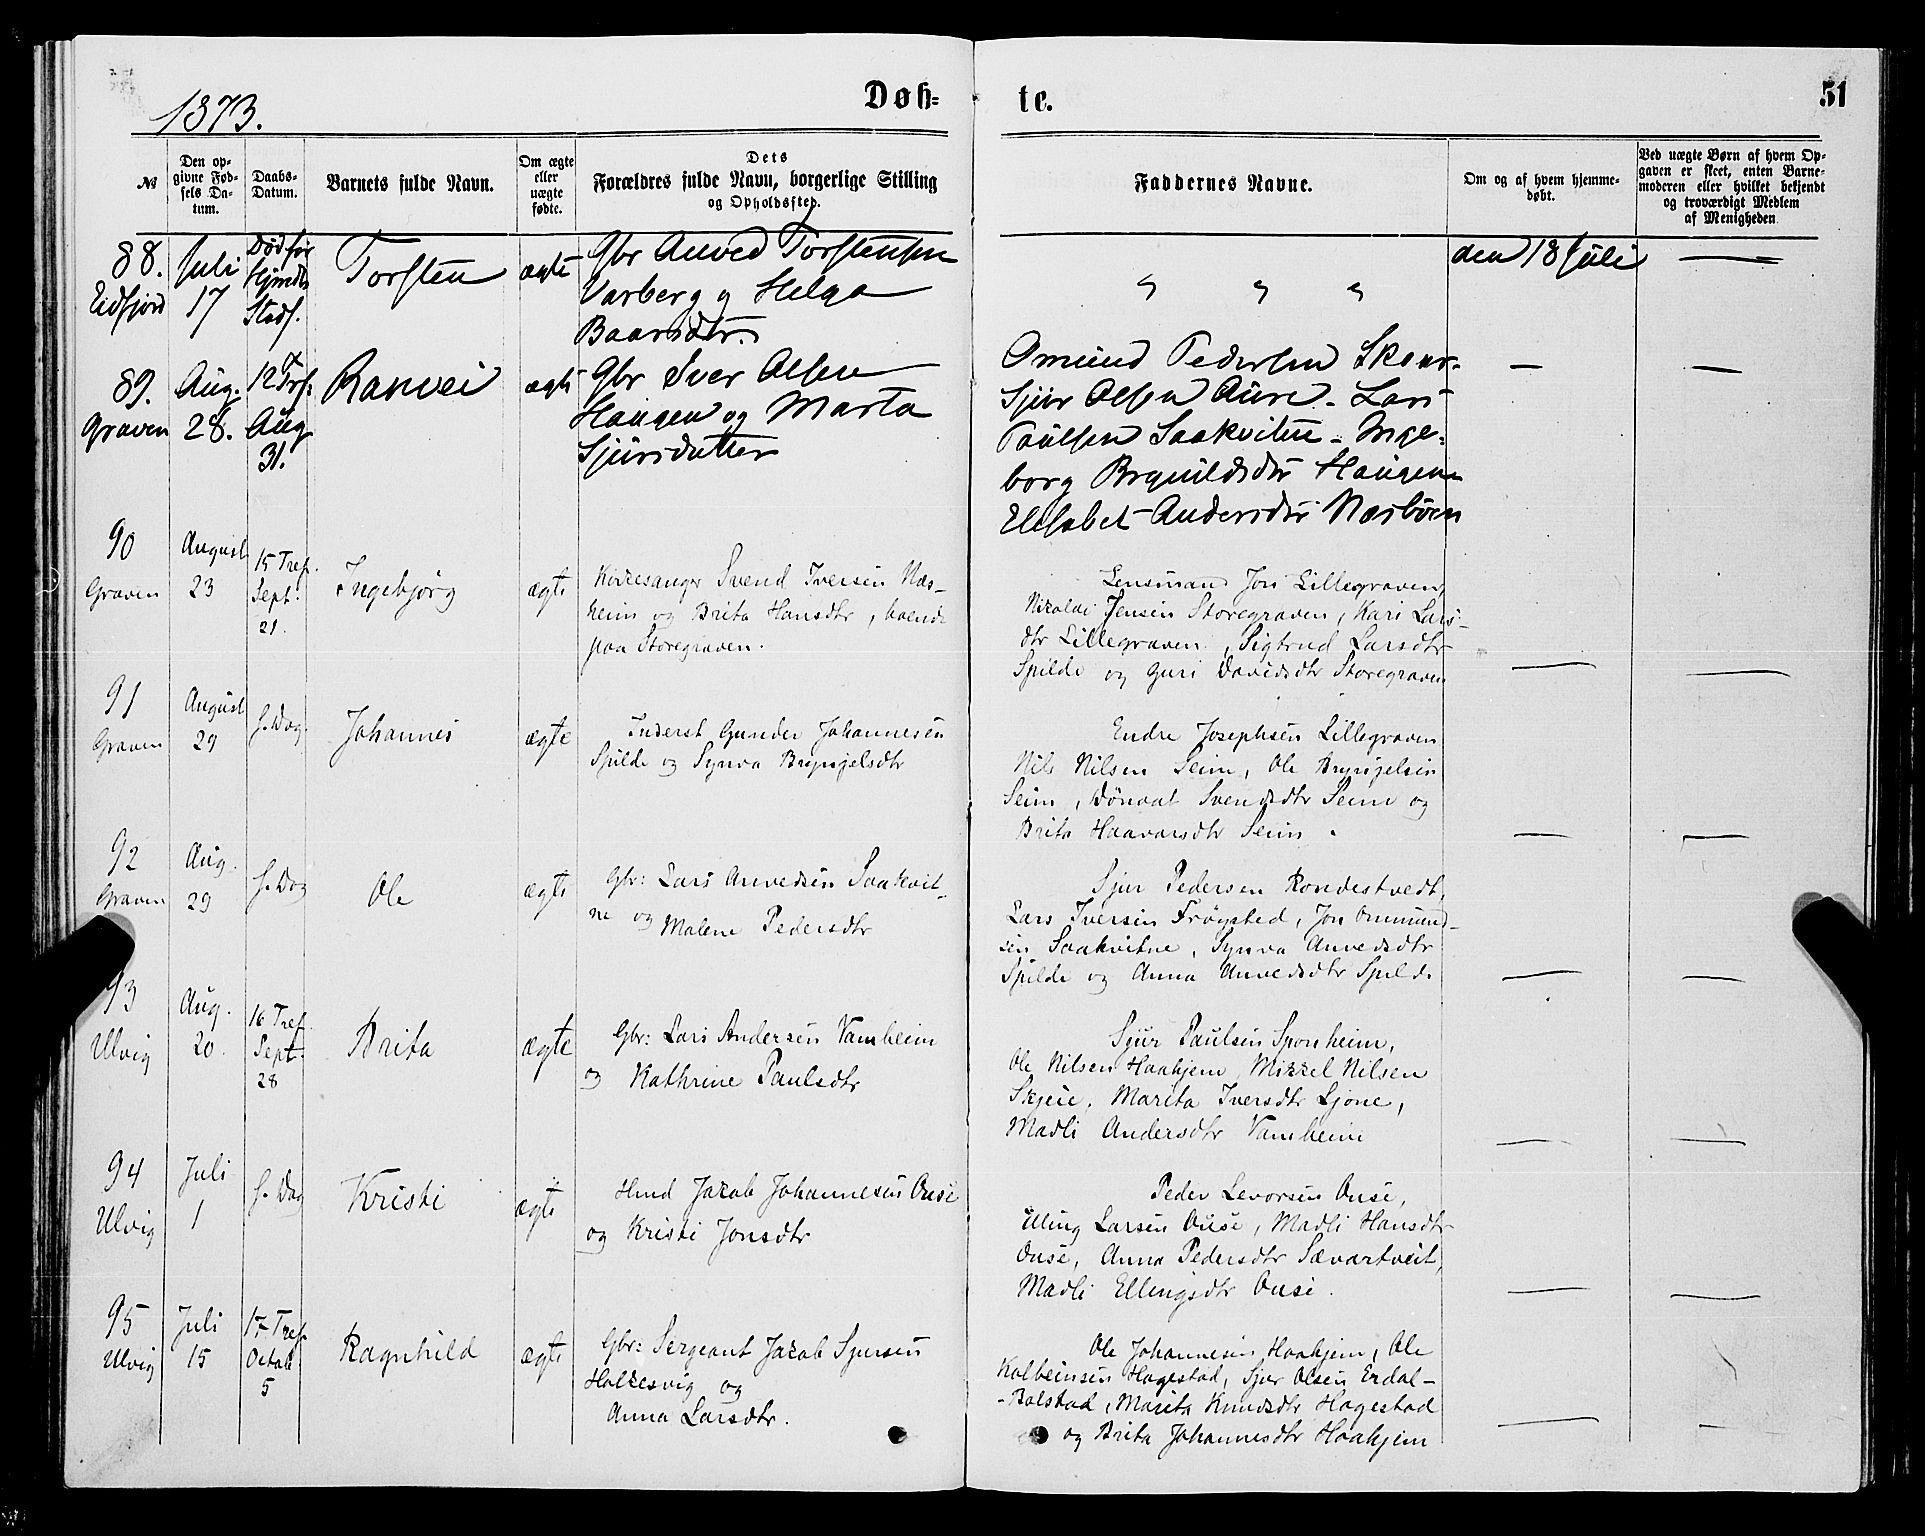 1873.
Døb=
te.
51
№
Den op-
givne Fød-
sels Da-
tum.
Daabs-
Datum.
Barnets fulde Navn.
Om ægte
eller
uægte
fødte.
Dets
Forældres fulde Navn, borgerlige Stilling
og Opholdssted.
Faddernes Navne.
Om og af hvem hjemme-
døbt.
Ved uægte Børn af hvem Op-
gaven er skeet, enten Barne-
moderen eller hvilket bekjendt
og troværdigt Medlem
af Menigheden
88.
Eidfjord
Juli
17
Død før
Stadf.
Torsten
ægte
Gbr Anved Torstensen
Varberg og Helga
Baarsdtr.
" " "
den 18 Juli
—
89.
Graven
Aug.
28.
12 Trf.
Aug
31.
Ranvei
ægte
Gbr Iver Olsen
Haugen og Marta
Sjursdatter
Omund Pedersen Skaar-
Sjur Olsen Aure - Lars
Paulsen Saakvitne - Inge-
borg Brynildsdtr Haugen
Elisabet Andersdtr Næsbøen
—
—
90
Graven
August
23
15 Tref.
Sept.
21.
Ingebjørg
ægte
Kirkesanger Svend Iversen Næs-
heim og Brita Hansdtr, boende
paa Storegraven.
Lensmand Jon Lillegraven,
Nikolai Jensen Storegraven, Kari Lars-
dtr Lillegraven, Sigtrud Larsdtr
Spilde og Guri Davidsdtr Storegraven
—
—
91
Graven
August
29
s. Dag.
Johannes
ægte
Inderst Gunder Johannesen
Spilde og Synva Bryngelsdtr
Endre Josephsen Lillegraven
Nils Nilsen Seim, Ole Bryngelsen
Seim, Dønvat Svendsdtr Seim og
Brita Haavarsdtr Seim.
—
—
92
Graven
Aug.
29
s. Dag
Ole
ægte
Gbr: Lars Anvedsen Saakvit-
ne og Malene Pedersdtr
Sjur Pedersen Rondestvedt,
Lars Iversen Frøysted, Jon Ommund-
sen Saakvitne, Synva Anvedsdtr
Spilde og Anna Anvedsdtr Spilde
—
—
93
Ulvig
Aug.
20.
16 Tref.
Sept.
28
Brita
ægte
Gbr: Lars Andersen Vamheim
og Kathrine Paulsdtr
Sjur Paulsen Sponheim,
Ole Nilsen Haahjem, Mikkel Nilsen
Skjeie, Marita Iversdtr Ljone,
Madli Andersdtr Vamheim
—
—
94
Ulvig
Juli
1
s. Dag
Kristi
ægte
Hmd Jakob Johannesen Ouse
og Kristi Jonsdtr
Peder Levorsen Ouse,
Elling Larsen Ouse, Madli Hansdtr
Ouse, Anna Pedersdtr Sævartveit,
Madli Ellingsdtr Ouse.
—
—
95
Ulvig
Juli
15
17 Tref.
Octob.
5
Ragnhild
ægte
Gbr: Sergeant Jakob Sjursen
Holkesvig og
Anna Larsdtr.
Ole Johannesen Haahjem, Ole
Kolbeinsen Hagestad, Sjur Olsen Erdal-
-Bolstad, Marita Knudsdtr Hagestad
og Brita Johannesdtr Haahjem
—
—